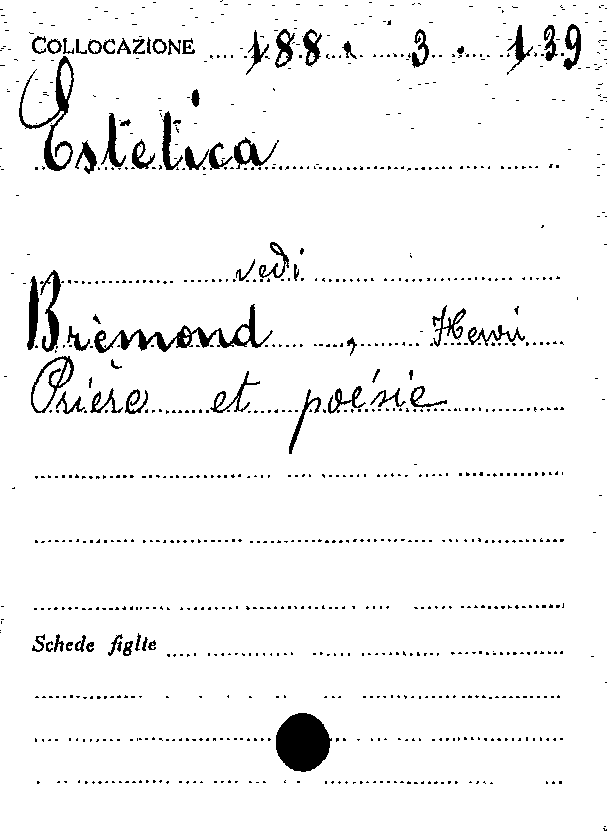 COLLOCAZIONE 188. 3. 139
Estetica
vedi
Brèmond, Henri
Prière et poésie
Schede figlie